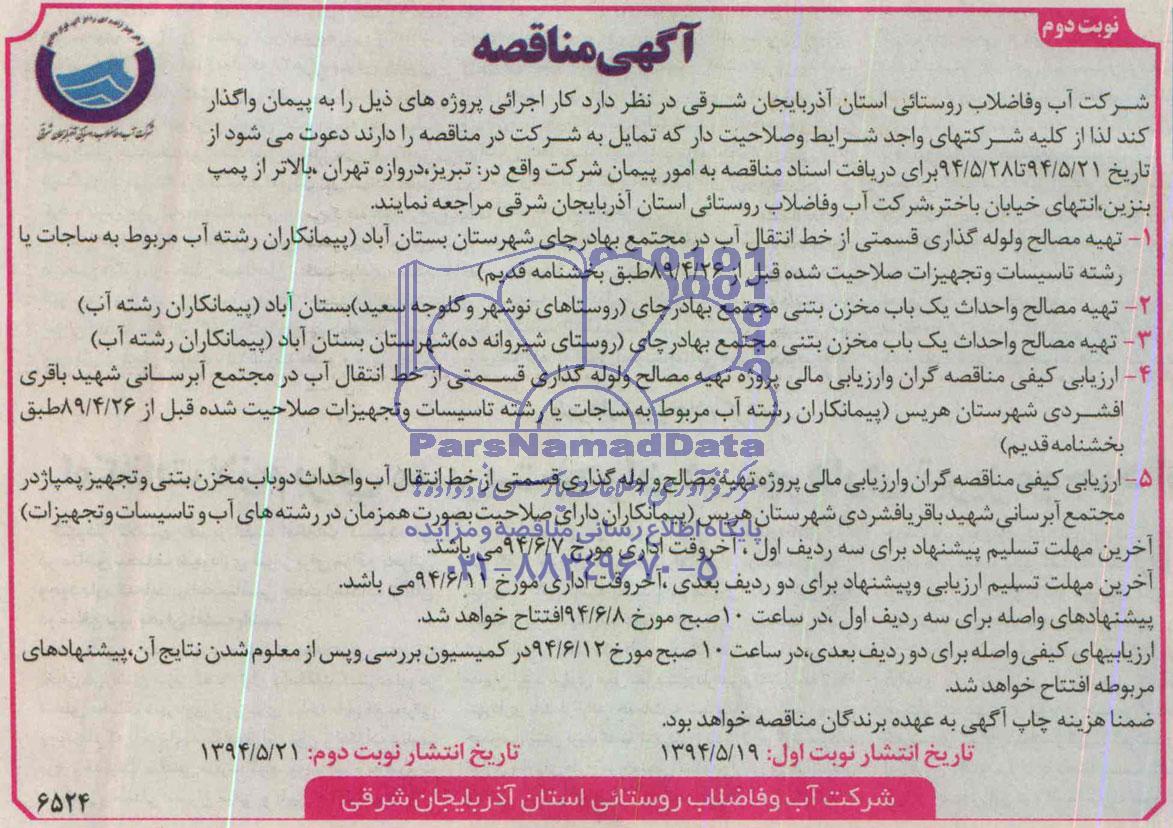 نوبت دوم
آگهی مناقصه
شرکت آب وفاضلاب روستائی استان آذربایجان شرقی
شرکت آب وفاضلاب روستائی استان آذربایجان شرقی در نظر دارد کار اجرائی پروژه های ذیل را به پیمان واگذار
کند لذا از کلیه شرکتهای واجد شرایط وصلاحیت دار که تمایل به شرکت در مناقصه را دارند دعوت می شود از
تاریخ ۹۴/۵/۲۱تا۹۴/۵/۲۸برای دریافت اسناد مناقصه به امور پیمان شرکت واقع در: تبریز،دروازه تهران ،بالاتر از پمپ
بنزین،انتهای خیابان باختر،شرکت آب وفاضلاب روستائی استان آذربایجان شرقی مراجعه نمایند.
۱- تهیه مصالح ولوله گذاری قسمتی از خط انتقال آب در مجتمع بهادرچای شهرستان بستان آباد (پیمانکاران رشته آب مربوط به ساجات یا
رشته تاسیسات وتجهیزات صلاحیت شده قبل از ۸۹/۴/۲۶طبق بخشنامه قدیم)
۲- تهیه مصالح واحداث یک باب مخزن بتنی مجتمع بهادرچای (روستاهای نوشهر وگلوجه سعید)بستان آباد (پیمانکاران رشته آب)
۳- تهیه مصالح واحداث یک باب مخزن بتنی مجتمع بهادرچای (روستای شیروانه ده)شهرستان بستان آباد (پیمانکاران رشته آب)
۴- ارزیابی کیفی مناقصه گران وارزیابی مالی پروژه تهیه مصالح ولوله گذاری قسمتی از خط انتقال آب در مجتمع آبرسانی شهید باقری
افشردی شهرستان هریس (پیمانکاران رشته آب مربوط به ساجات یا رشته تاسیسات وتجهیزات صلاحیت شده قبل از ۸۹/۴/۲۶طبق
بخشنامه قدیم)
۵- ارزیابی کیفی مناقصه گران وارزیابی مالی پروژه تهیه مصالح و لوله گذاری قسمتی از خط انتقال آب واحداث دوباب مخزن بتنی وتجهیز پمپاژ در
مجتمع آبرسانی شهید باقریافشردی شهرستان هریس (پیمانکاران دارای صلاحیت بصورت همزمان در رشته های آب و تاسیسات وتجهیزات)
آخرین مهلت تسلیم پیشنهاد برای سه ردیف اول ، آخروقت اداری مورخ ۹۴/۶/۷می باشد.
آخرین مهلت تسلیم ارزیابی وپیشنهاد برای دو ردیف بعدی ،آخروقت اداری مورخ ۹۴/۶/۱۱می باشد.
پیشنهادهای واصله برای سه ردیف اول ،در ساعت ۱۰صبح مورخ ۹۴/۶/۸افتتاح خواهد شد.
ارزیابیهای کیفی واصله برای دو ردیف بعدی،در ساعت ۱۰ صبح مورخ ۹۴/۶/۱۲در کمیسیون بررسی وپس از معلوم شدن نتایج آن،پیشنهادهای
مربوطه افتتاح خواهد شد.
ضمنا هزینه چاپ آگهی به عهده برندگان مناقصه خواهد بود.
تاریخ انتشار نوبت اول: ۱۳۹۴/۵/۱۹ تاریخ انتشار نوبت دوم: ۱۳۹۴/۵/۲۱
شرکت آب وفاضلاب روستائی استان آذربایجان شرقی
۶۵۲۴
ParsNamadData
پایگاه اطلاع رسانی مناقصه و مزایده
۰۲۱-۸۸۳۴۹۶۷۰-۵